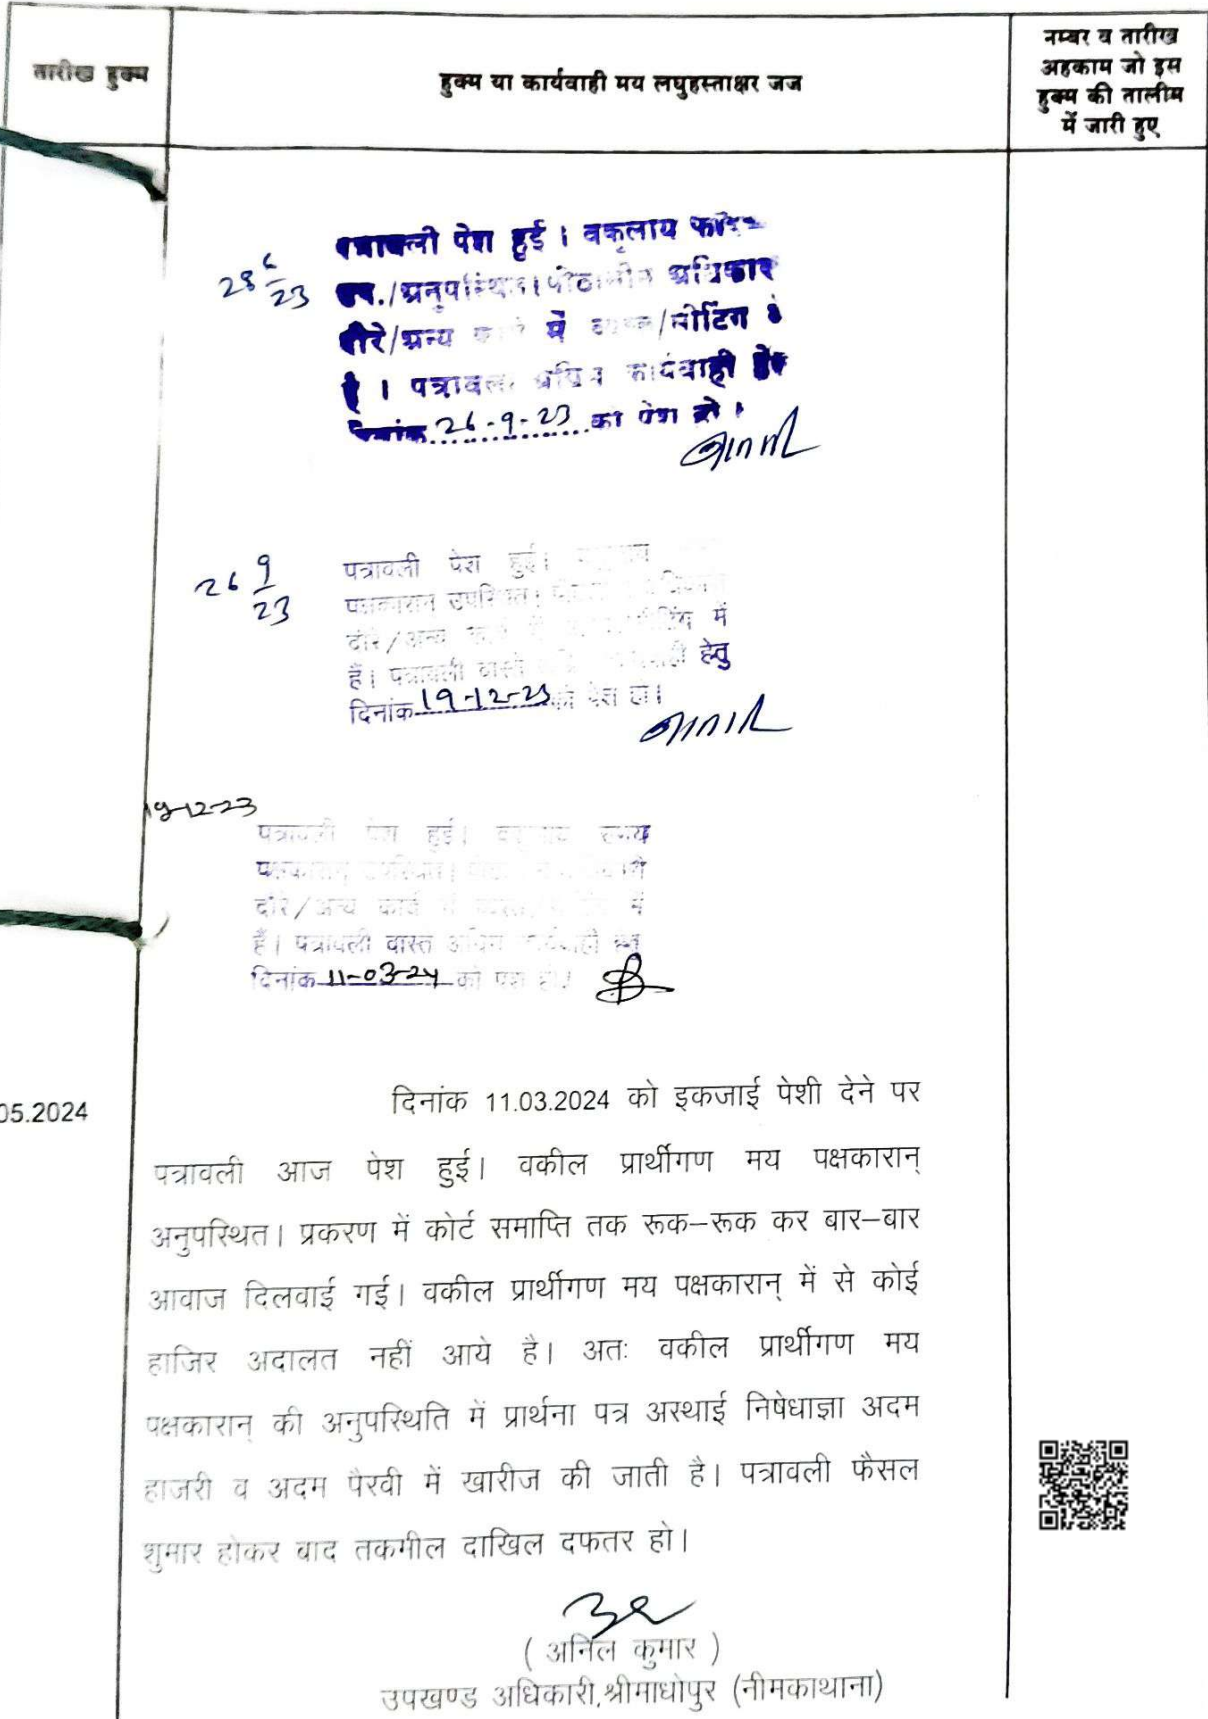 तारीख हुक्म
हुक्म या कार्यवाही मय लघुहस्ताक्षर जज
नम्बर व तारीख
अहकाम जो इस
हुक्म की तालीम
में जारी हुए
पत्रावली पेश हुई । वकलाय
28 6/23
/अनुपस्थित। अधिकारी
दौरे/अन्य में /मीटिंग
है । पत्रावली कार्यवाही हेतु
दिनांक 26-9-23 को पेश हो ।
26 9/23
पत्रावली पेश हुई।
पक्षकारान उपस्थित।
दौरे/अन्य में
हैं। पत्रावली वास्ते हेतु
दिनांक 19-12-23 को पेश हो।
19-12-23
पत्रावली पेश हुई। उभय
पक्षकारान् उपस्थित।
दौरे/अन्य कार्य में
हैं। पत्रावली वास्ते कार्यवाही हेतु
दिनांक 11-03-24 को पेश हो।
05.2024
दिनांक 11.03.2024 को इकजाई पेशी देने पर
पत्रावली आज पेश हुई। वकील प्रार्थीगण मय पक्षकारान्
अनुपस्थित। प्रकरण में कोर्ट समाप्ति तक रूक–रूक कर बार–बार
आवाज दिलवाई गई। वकील प्रार्थीगण मय पक्षकारान् में से कोई
हाजिर अदालत नहीं आये है। अतः वकील प्रार्थीगण मय
पक्षकारान् की अनुपस्थिति में प्रार्थना पत्र अस्थाई निषेधाज्ञा अदम
हाजरी व अदम पैरवी में खारीज की जाती है। पत्रावली फैसल
शुमार होकर बाद तकमील दाखिल दफतर हो।
( अनिल कुमार )
उपखण्ड अधिकारी,श्रीमाधोपुर (नीमकाथाना)